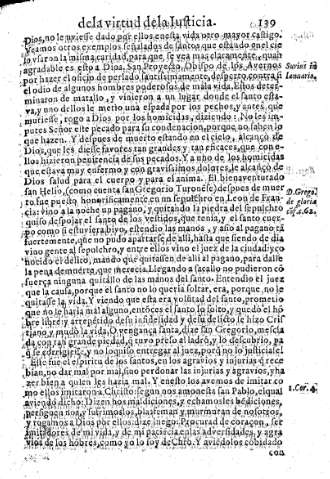 de la virtud de la Iusticia. 139
Dios, no le uviese dado por ellos en esta vida otro mayor castigo.
Veamos otros exemplos señalados de santos que estando en el cie
lo usaron la misma caridad, para que se vea mas claramente, quan
agradable es esto a Dios. San Proyecto, Obispo de los Avernos
por hazer el oficio de perlado santissimamente, desperto contra si
el odio de algunos hombres poderosos de mala vida. Estos deter-
minaron de matallo, y vinieron a un lugar donde el santo esta-
va, y uno dellos le metio una espada por los pechos, y antes que
muriesse, rogo a Dios por los homicidas, diziendo: No les im-
putes Señor este pecado para su condenacion, porque no saben lo
que hazen. Y despues de muerto estando en el cielo, alcanço de
Dios, que les diesse favores tan grandes y tan eficaces, que con e-
llos hizieron penitencia de sus pecados. Y a uno de los homicidas
que estava muy enfermo y con gravissimos dolores, le alcanço de
Dios salud para el cuerpo y para el anima. El bienaventurado
san Helio, (como cuenta san Gregorio Turonēse) despues de muer
to, fue puesto honorificamente en un sepulchro en Leon de Fran
cia: vino a la noche un pagano, y quitando la piedra del sepulchro
quiso despojar el santo de los vestidos, que tenia, y el santo cuer-
po como si estuviera bivo, estendio las manos, y asio al pagano tā
fuertemente, que no pudo apartarse de alli, hasta que siendo de dia
vino gente al sepulchro, y entre ellos vino el juez de la ciudad, y co
nocido el delito, mando que quitassen de alli al pagano, para dalle
la pena de muerte, que merecia. Llegando a sacallo no pudieron cō
fuerça ninguna quitallo de las manos del santo. Entendio el juez
que la causa, porque el santo no lo queria soltar, era, porque no le
quitasse la vida. Y viendo que esta era volūtad del santo, prometio
que no le haria mal alguno, entōces el santo lo solto, y quedo el hō
bre libre: y arrepētido de su infidelidad y de su delito se hizo Cris
tiano, y mudo la vida. O vengança santa, dize san Gregorio, mescla
da con tan grande piedad, q̄ tuvo preso al ladrō, y lo descubrio, pa
q̄ se corrigiesse, y no lo quiso entregar al juez, porq̄ no lo justiciase.
Este fue el espiritu de los santos, en los agravios y injurias q̄ rece
bian, no dar mal por mal, sino perdonar las injurias y agravios, y ha
zer bien a quien les hazia mal. Y en esto los avemos de imitar co
mo ellos imitaron a Christo: segun nos amonesta san Pablo, el qual
aviendo dicho: Dizen nos maldiciones, y echamosles bēdiciones,
persiguen nos, y sufrimoslos, blasfeman y murmuran de nosotros,
y rogamos a Dios por ellos: dize luego: Procurad de coraçon, ser
imitadores de mi vida, y de mi paciencia en las adversidades, y agra
vios de los hōbres, como yo lo soy de Chrō. Y aviendolos cōbidado
con
Surius in
Ianuario.
D. Grego.
de gloria
cōf. c. 62.
1. Cor. 4.